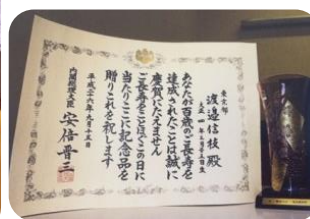 東京都
渡邉信枝殿
あなたが百歳のご長寿を
達成されたことは誠に
慶賀にたえません
ご長寿をことほぐこの日に
当たりここに記念品を
贈りこれを祝します
平成二十六年九月十五日
内閣総理大臣 安倍晋三